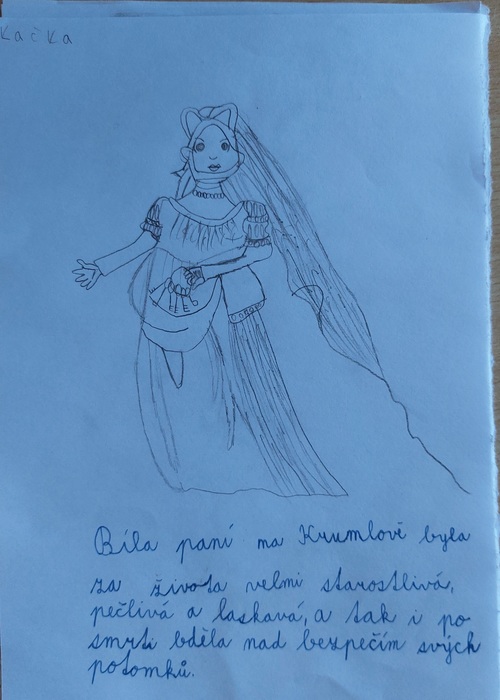 Kačka
Bíla paní ma Krumlově byla
za života velmi starostlivá,
pečlivá a laskavá, a tak i po
smrti bděla nad bezpečím svých
potomků.